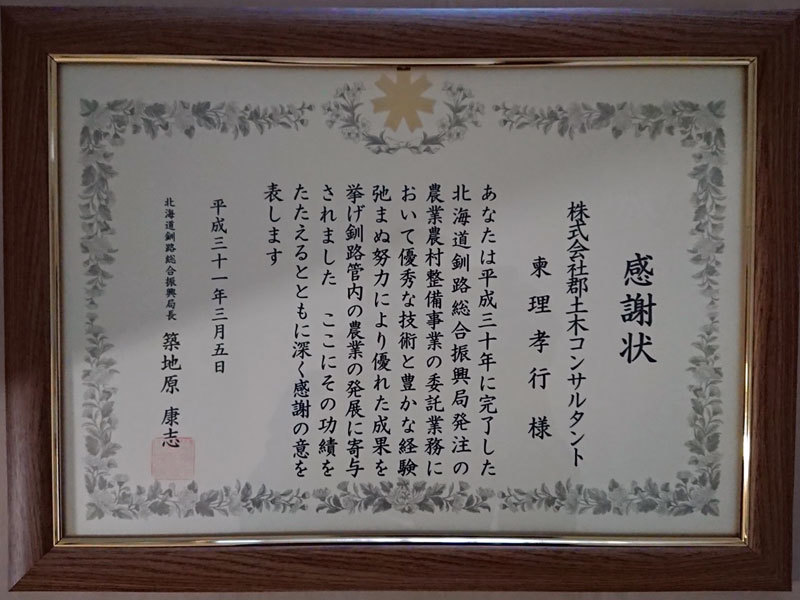 感謝状
株式会社郡土木コンサルタント
東理孝行様
あなたは平成三十年に完了した
北海道釧路総合振興局発注の
農業農村整備事業の委託業務に
おいて優秀な技術と豊かな経験
弛まぬ努力により優れた成果を
挙げ釧路管内の農業の発展に寄与
されました　ここにその功績を
たたえるとともに深く感謝の意を
表します
平成三十一年三月五日
北海道釧路総合振興局長　築地原康志